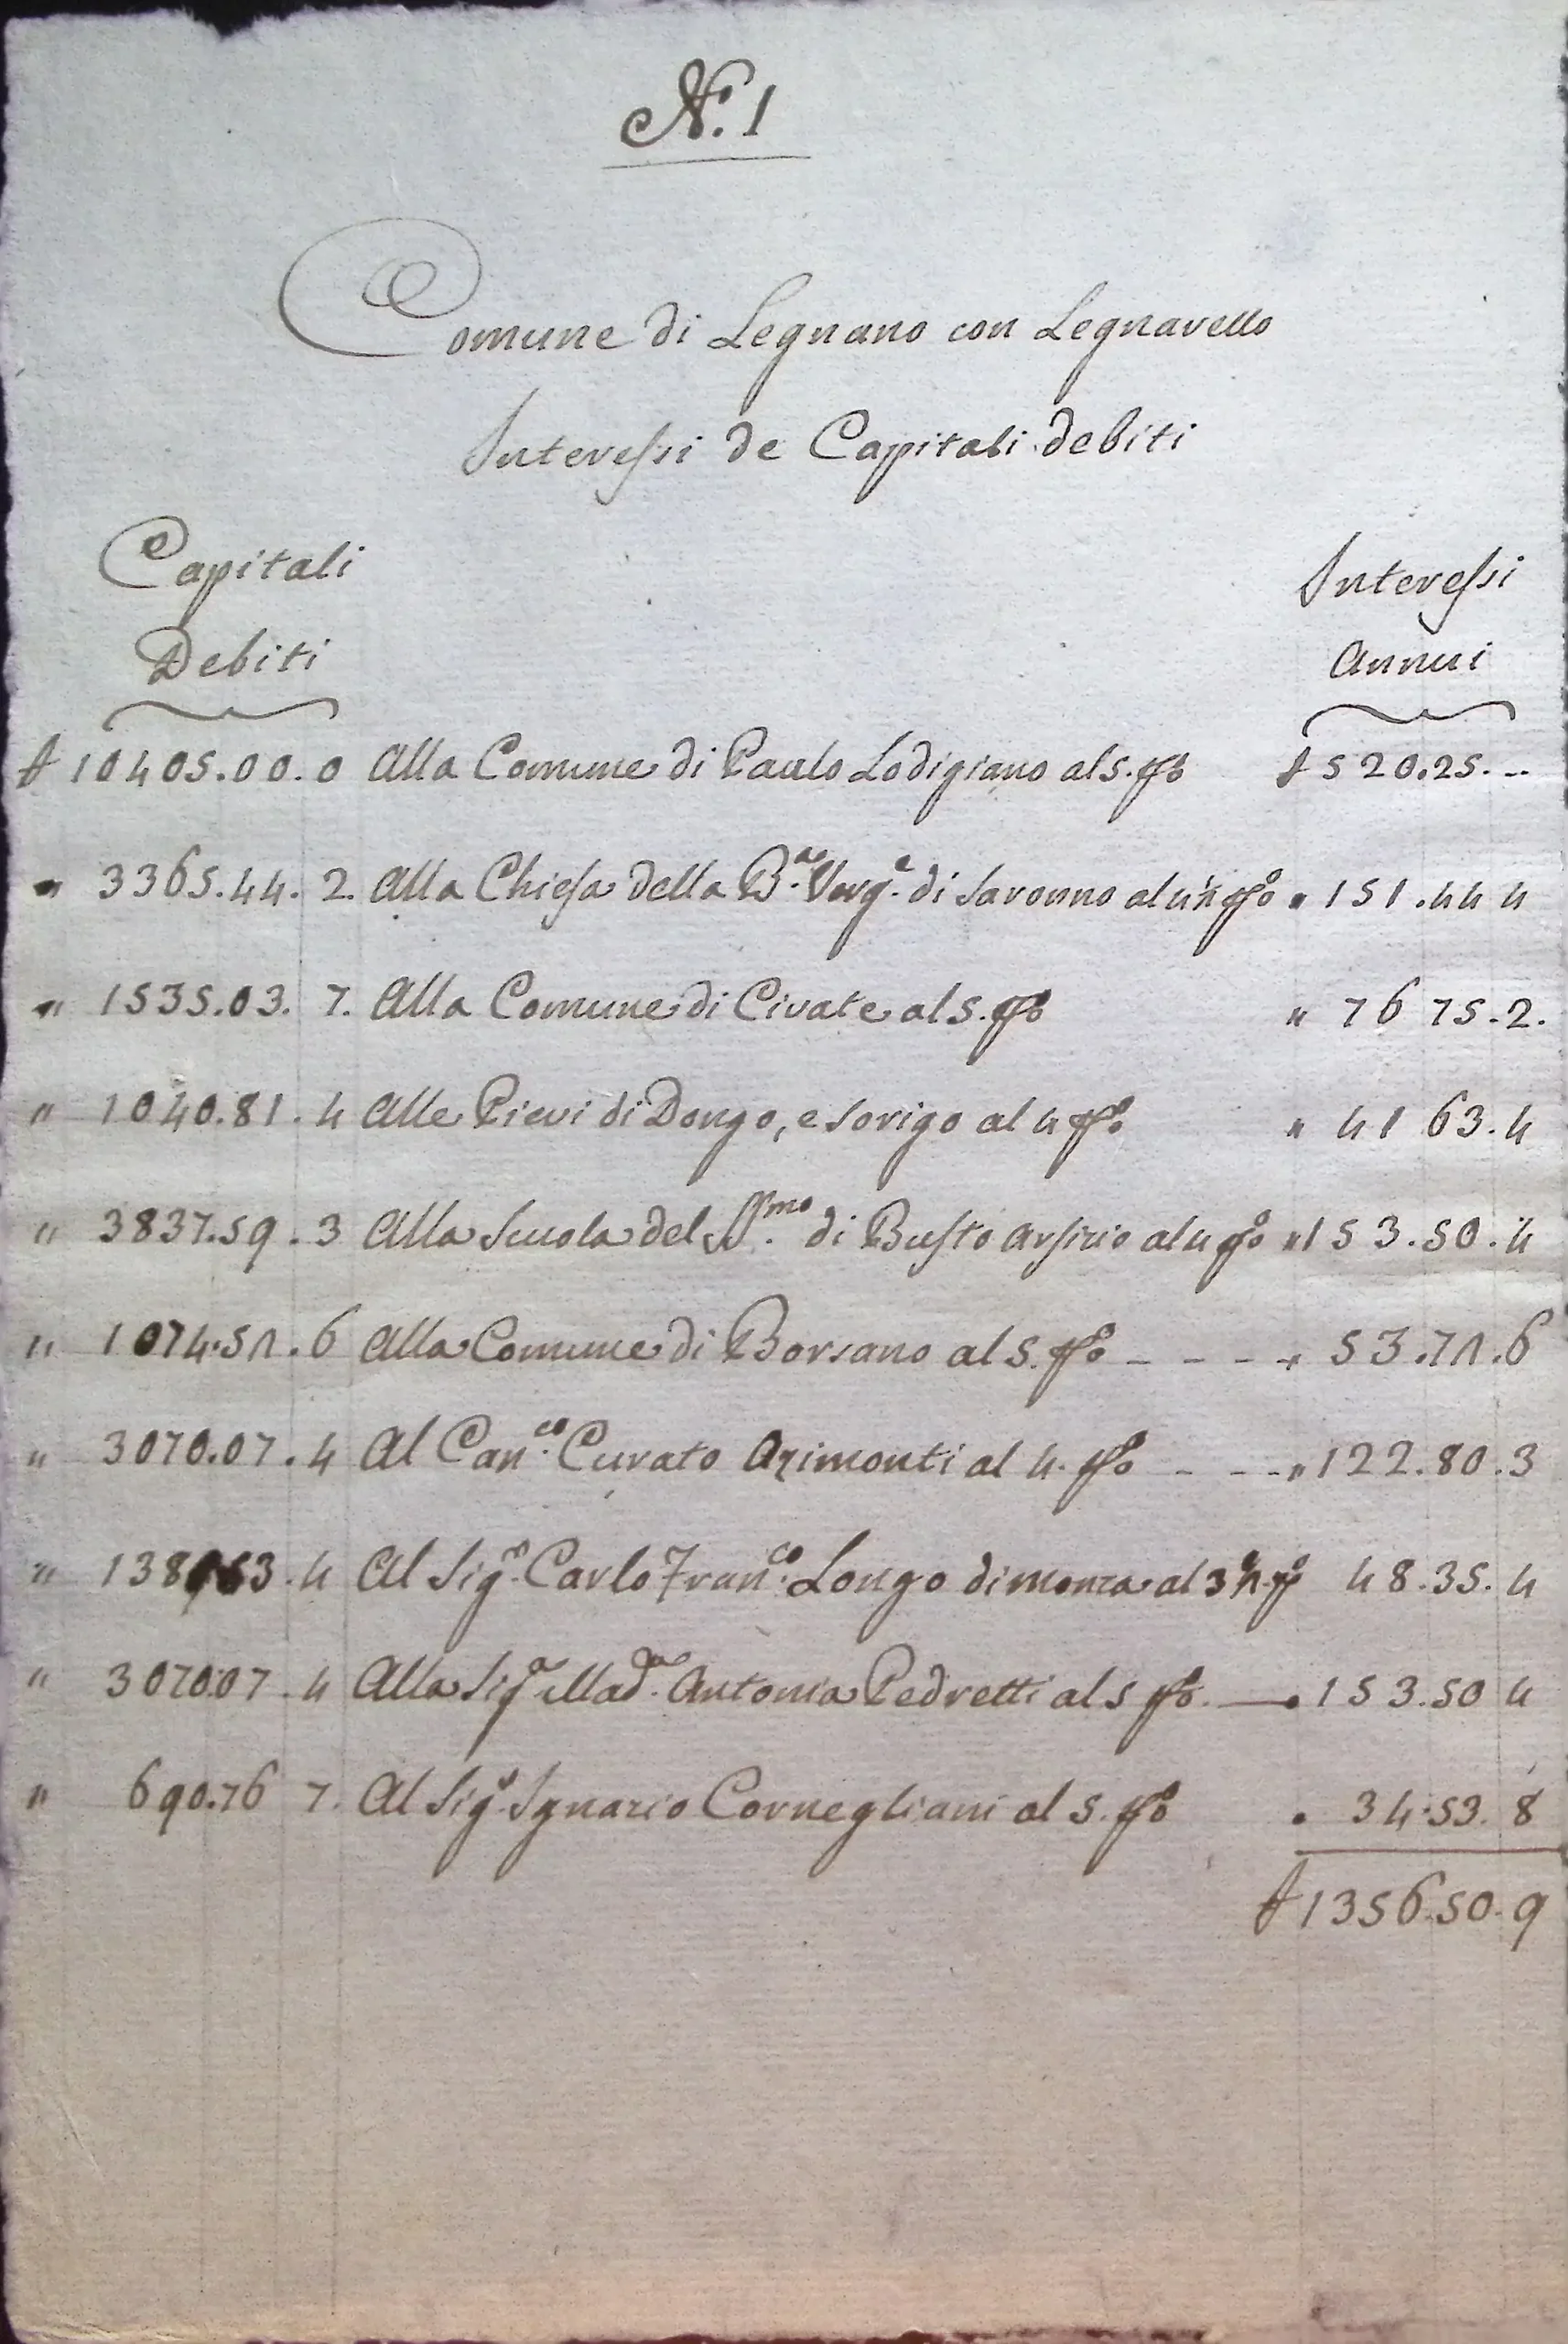 N.º 1
Comune di Legnano con Legnarello
Interessi de Capitali debiti
Capitali Interessi
Debiti Annui
£ 10405.00.0 Alla Comune di Paulo Lodigiano al 5. p%o £ 520.25. --
" 3365.44. 2. Alla Chiesa della B.a Verg.e di Saronno al 4½ p%o " 151.44 4
" 1535.03. 7. Alla Comune di Civate al 5. p%o " 76 75.2.
" 1040.81.4 Alle Pievi di Dongo, e Sorigo al 4 p%o " 41 63.4
" 3837.59.3 Alla Scuola del SS.mo di Busto Arsizio al 4 p%o " 153.50.4
" 1074.51.6 Alla Comune di Borsano al 5. p%o - - - - " 53.71.6
" 3070.07.4 Al Can.co Curato Azimonti al 4. p%o - - - " 122.80.3
" .4 Al Sig.r Carlo Fran.co Longo di Monza al 3½ p%o 48.35.4
" 3070.07.4 Alla Sig.a Mad.a Antonia Pedretti al 5 p%o. — " 153.50 4
" 690.76 7. Al Sig.r Ignazio Cornegliani al 5. p%o " 34.53. 8
£ 1356.50.9